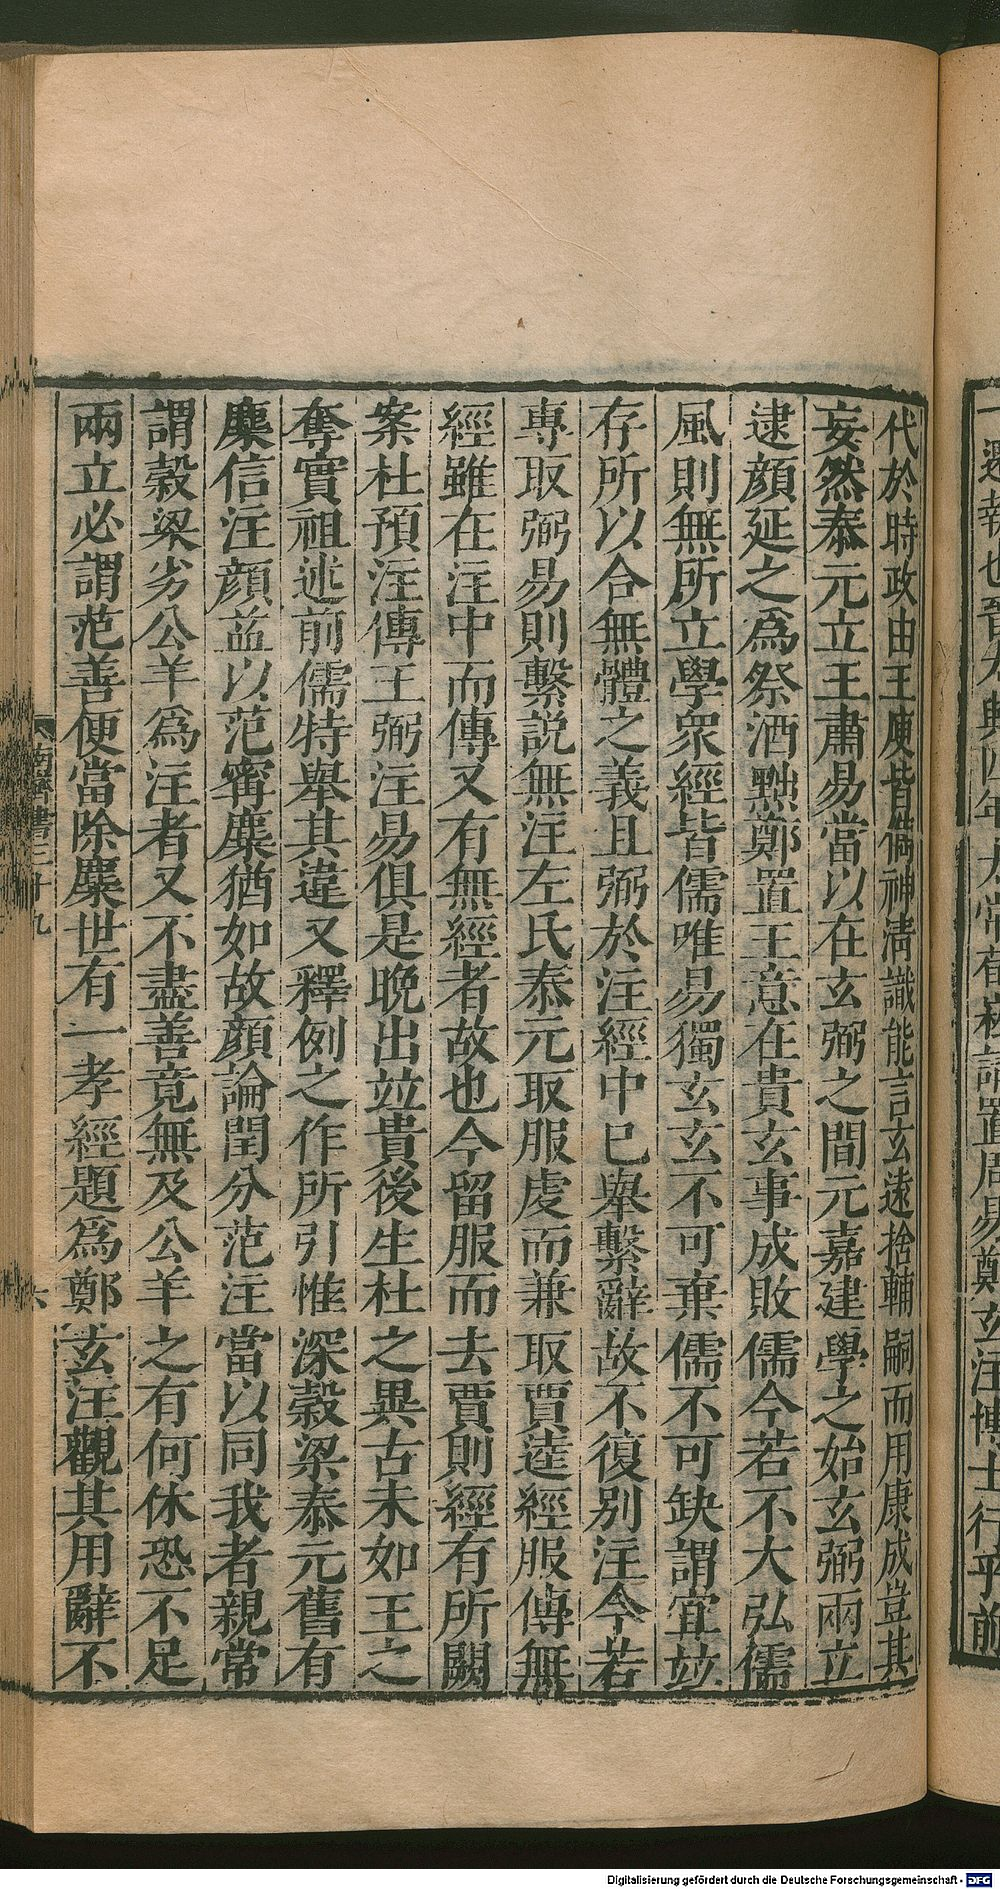 代於時政由王庾皆儁神清識能言玄遠捨輔嗣而用康成豈其
妄然泰元立王肅易當以在玄弼之間元嘉建學之始玄弼兩立
逮顏延之為祭酒黜鄭置王意在貴玄事成敗儒今若不大弘儒
風則無所立學眾經皆儒唯易獨玄玄不可棄儒不可缺謂宜竝
存所以合無體之義且弼於注經中已舉繫辭故不復別注今若
專取弼易則繫說無注左氏泰元取服虔而兼取賈逵經服傳無
經雖在注中而傳又有無經者故也今留服而去賈則經有所闕
案杜預注傳王弼注易俱是晚出竝貴後生杜之異古未如王之
奪實祖述前儒特舉其違又釋例之作所引惟深穀梁泰元舊有
麋信注顏益以范甯麋猶如故顏論閏分范注當以同我者親常
謂穀梁劣公羊為注者又不盡善竟無及公羊之有何休恐不足
兩立必謂范善便當除麋世有一孝經題為鄭玄注觀其用辭不
南齊書三十九
六
太常荀崧請置周易鄭玄注博士行乎前
Digitalisierung gefördert durch die Deutsche Forschungsgemeinschaft - DFG